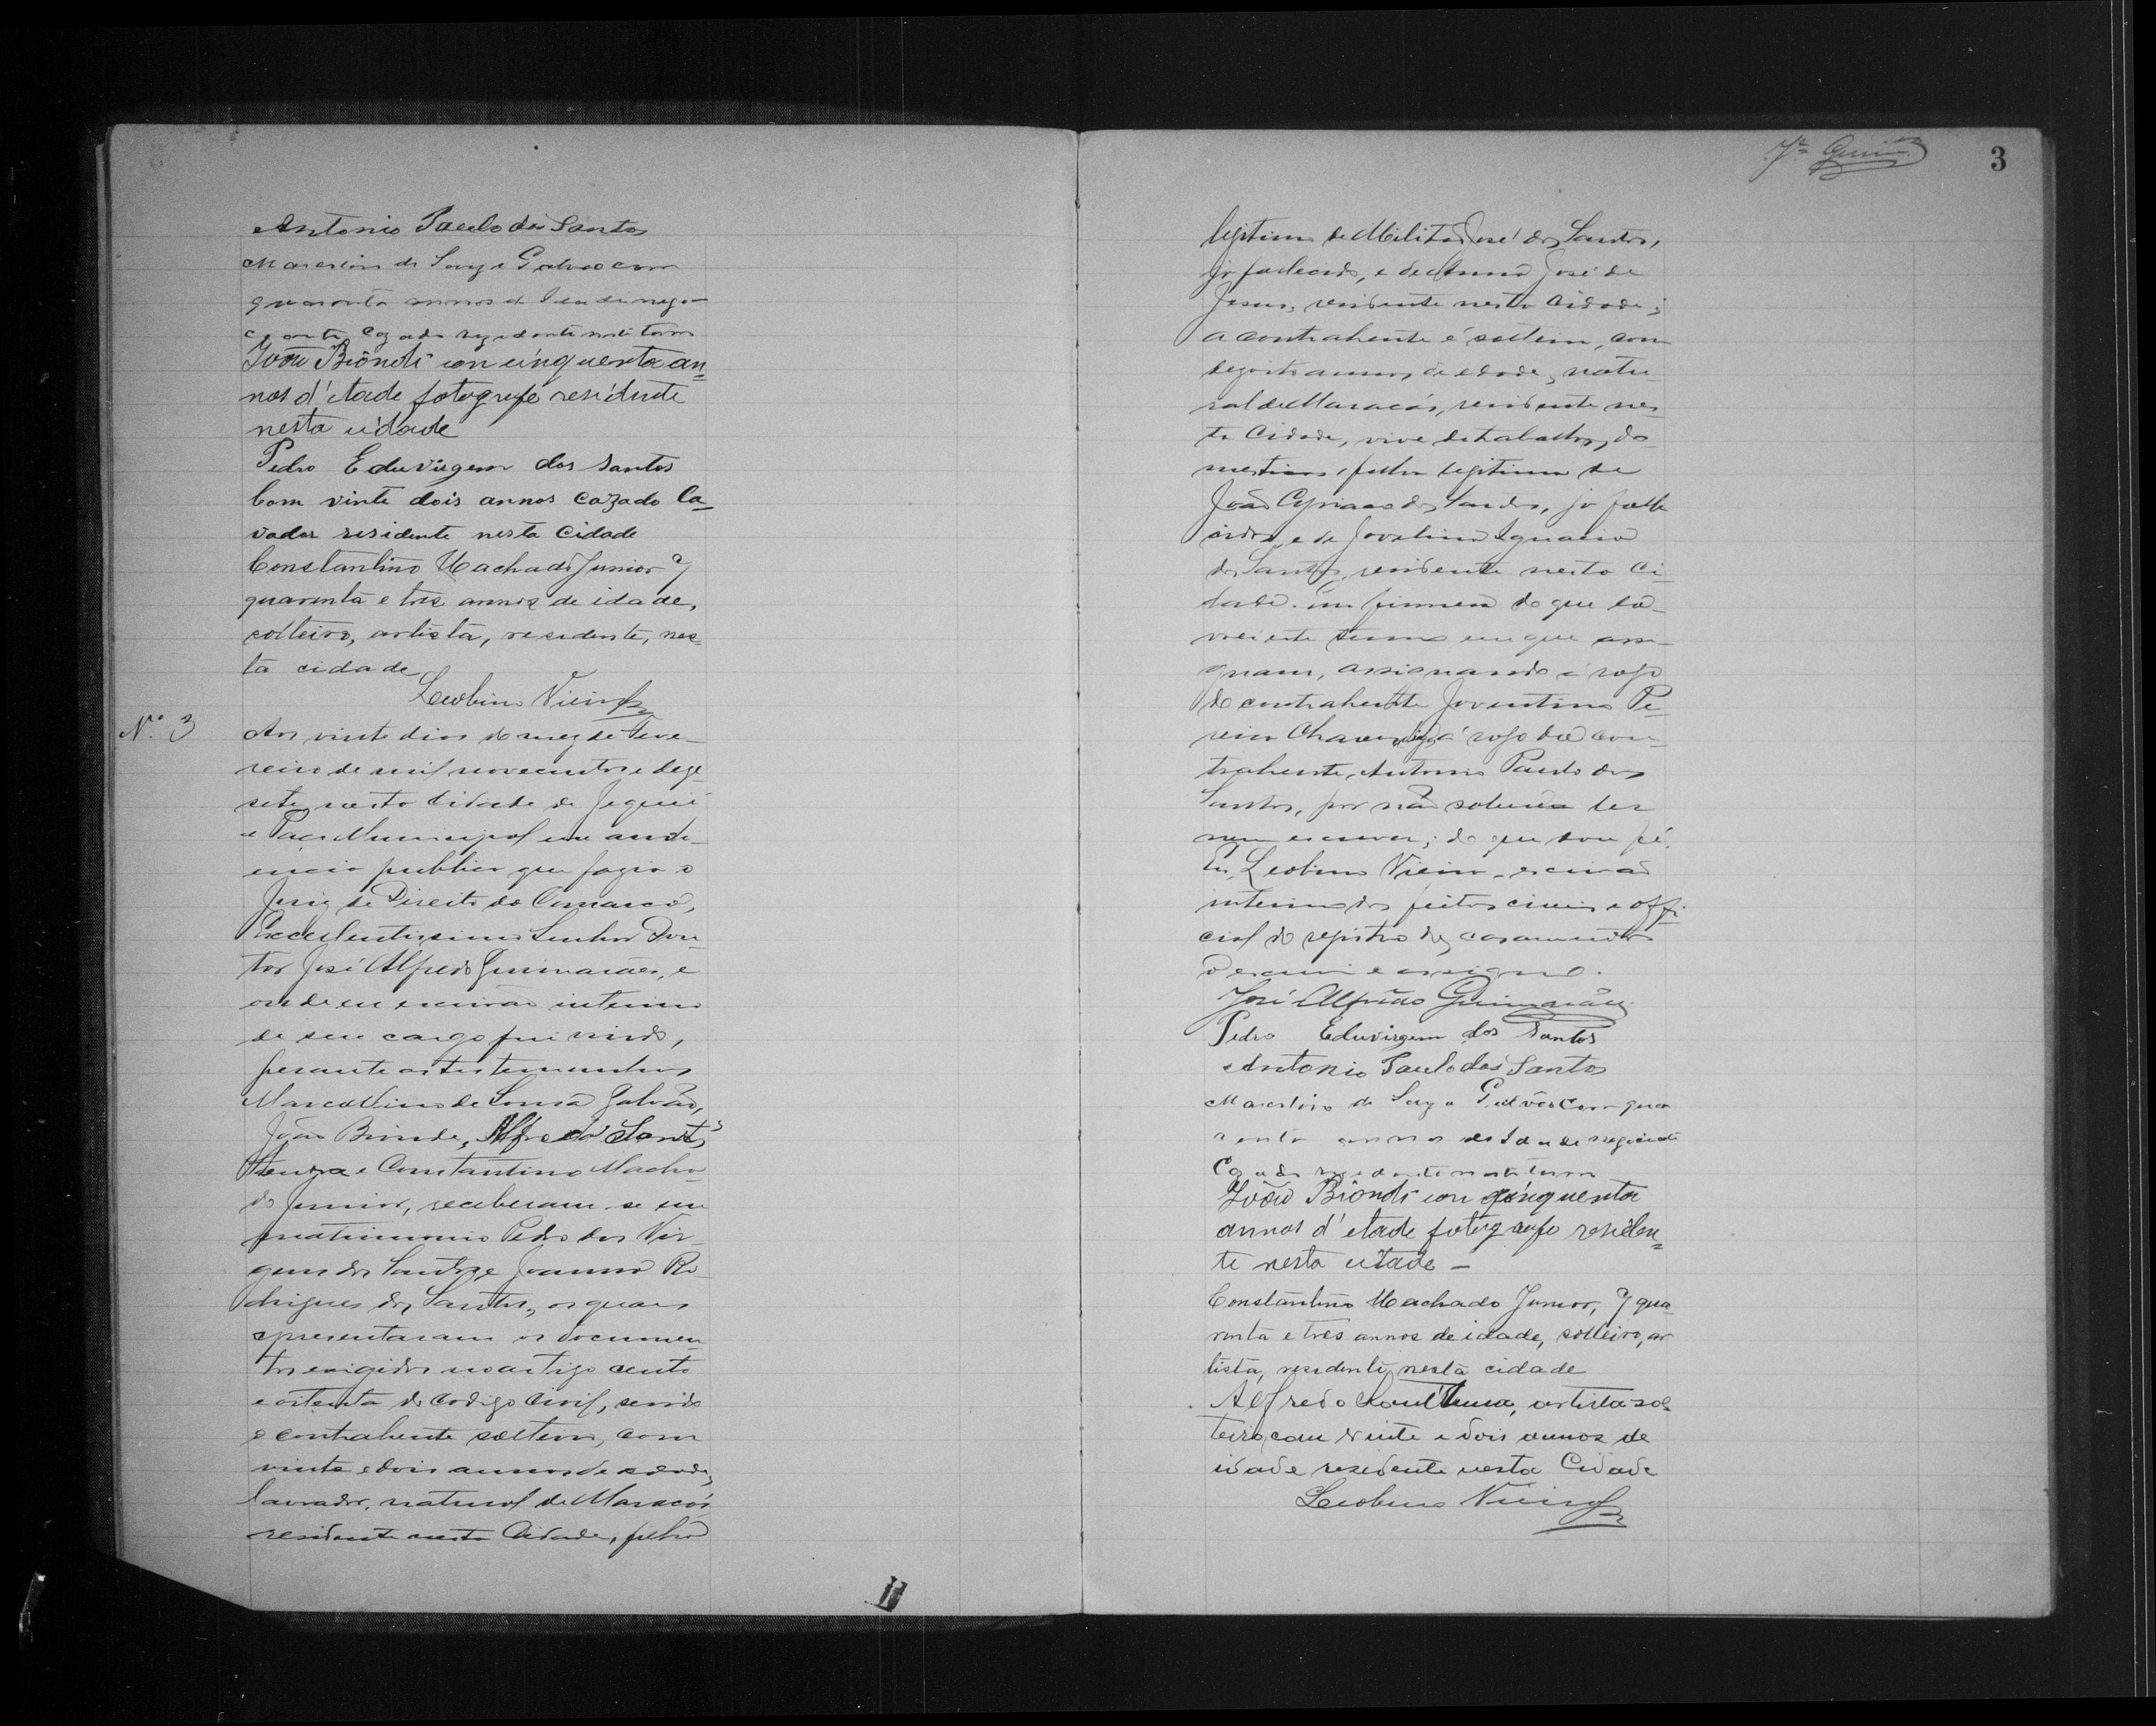 Antonio Paulo dos Santos
Marcolino de Souza Galvão com
quarenta annos de idade nego-
ciante Cazado rezidente nesta terra
João Biondi con cinquenta an=
nos d'etade fotografo residente
nesta cidade
Pedro Eduvirgem dos Santos
Com vinte dois annos Cazado La=
vador residente nesta Cidade
Constantino Machado Junior
quarenta e tres annos de idade,
solteiro, artista, residente, nes-
ta cidade
Leobino Vieira
Nº 3
Aos vinte dias do mez de Feve-
reiro de mil novecentos e deze-
sete, nesta Cidade de Jequié
e Paço Municipal em audi-
encia publica que fazia o
Juiz de Direito da Comarca,
Excellentissimo Senhor Dou-
tor José Alfredo Guimarães, e
onde eu escrivão interino
de seu cargo fui vindo,
perante as testemunhas
Marcollino de Souza Galvão,
João Biondi, Alfredo Sant'
Anna e Constantino Macha-
do Junior, receberam-se em
matrimonio Pedro dos Vir-
gens dos Santos e Joanna Ro-
drigues dos Santos, os quaes
apresentaram os documen-
tos exigidos no artigo cento
e oitenta do Codigo Civil, sendo
o contrahente solteiro, com
vinte e dois annos de edade,
lavrador, natural de Maracás
residente nesta Cidade, filho
Jé Guim.es
3
legitimo de José dos Santos,
já fallecido, e de Anna José de
Jesus, residente nesta Cidade;
a contrahente é solteira, com
dezoito annos de edade, natu-
ral de Maracás, residente nes-
ta Cidade, vive de trabalhos do-
mesticos, filha legitima de
João Cypriano dos Santos, já falle-
cido, e de Jovelina Ignacia
dos Santos, residente nesta Ci-
dade. Em firmeza do que la-
vrei este termo em que assi-
gnam, assignando á rogo
do contrahente Joventino Pe-
reira Chaves, digo, á rogo da con-
trahente, Antonio Paulo dos
Santos, por não saberem ler
nem escrever; do que dou fé.
Eu, Leobino Vieira, escrivão
interino dos feitos civeis e offi-
cial do registro dos casamentos
o escrevi e assigno.
José Alfredo Guimarães
Pedro Eduvirgem dos Santos
Antonio Paulo dos Santos
Marcolino de Souza Galvão com qua
renta annos de idade negociante
Cazado rezidente nesta terra
João Biondi con cinquenta
annos d'etade fotografo residen=
te nesta citade —
Constantino Machado Junior, qua-
renta e tres annos de idade, solteiro, ar
tista, residente, nesta cidade
Alfredo Sant'Anna, artista sol-
teiro, com vinte e dois annos de
idade residente nesta Cidade
Leobino Vieira